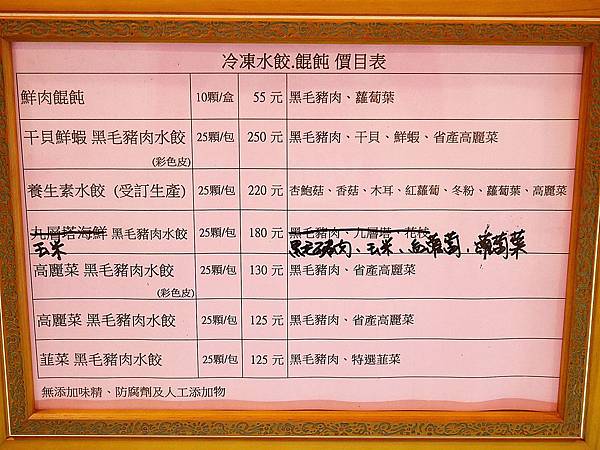 冷凍水餃.餛飩 價目表
鮮肉餛飩 10顆/盒 55 元 黑毛豬肉、蘿蔔葉
干貝鮮蝦 黑毛豬肉水餃 25顆/包 250 元 黑毛豬肉、干貝、鮮蝦、省產高麗菜
(彩色皮)
養生素水餃 (受訂生產) 25顆/包 220 元 杏鮑菇、香菇、木耳、紅蘿蔔、冬粉、蘿蔔葉、高麗菜
九層塔海鮮 黑毛豬肉水餃 25顆/包 180 元 黑毛豬肉、九層塔、花枝
玉米 黑毛豬肉、玉米、白蘿蔔、蘿蔔葉
高麗菜 黑毛豬肉水餃 25顆/包 130 元 黑毛豬肉、省產高麗菜
(彩色皮)
高麗菜 黑毛豬肉水餃 25顆/包 125 元 黑毛豬肉、省產高麗菜
韮菜 黑毛豬肉水餃 25顆/包 125 元 黑毛豬肉、特選韮菜
無添加味精、防腐劑及人工添加物